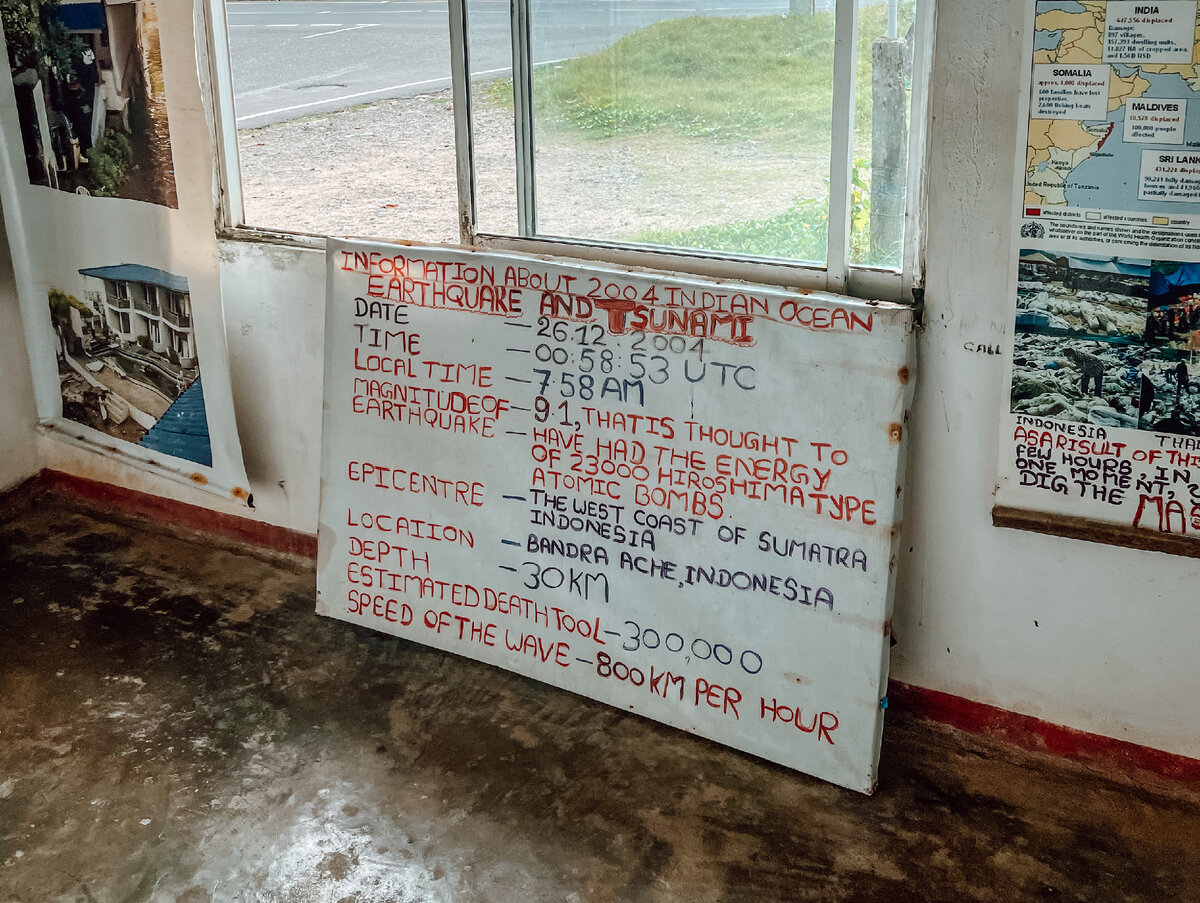 INFORMATION ABOUT 2004 INDIAN OCEAN
EARTHQUAKE AND TSUNAMI
DATE — 26.12 2004
TIME — 00:58:53 UTC
LOCAL TIME — 7.58 AM
MAGNITUDE OF — 9.1, THAT IS THOUGHT TO
EARTHQUAKE — HAVE HAD THE ENERGY
OF 23000 HIROSHIMA TYPE
ATOMIC BOMBS.
EPICENTRE — THE WEST COAST OF SUMATRA
INDONESIA
LOCATION — BANDRA ACHE, INDONESIA
DEPTH — 30 KM
ESTIMATED DEATH TOOL — 300,000
SPEED OF THE WAVE — 800 KM PER HOUR
INDIA
647,556 displaced
Damage:
897 villages,
157,393 dwelling units,
11,827 HA of cropped area,
and 1.56B USD
SOMALIA
approx. 4,000 displaced
600 families have lost
properties.
2,600 fishing boats
destroyed
MALDIVES
10,578 displaced
100,000 people
affected
SRI LANK
displac
fully damag
homes and
partially damaged
Somalia
Mogadishu
Kenya
United Republic of Tanzania
affected districts affected countries country
The boundaries and names shown and the designations used
whatsoever on the part of the World Health Organization
area or of its authorities, or concerning the delimitation of its
CALL
INDONESIA THA
AS A RISULT OF THIS
FEW HOURS IN
ONE MOMENT,
DIG THE MAS